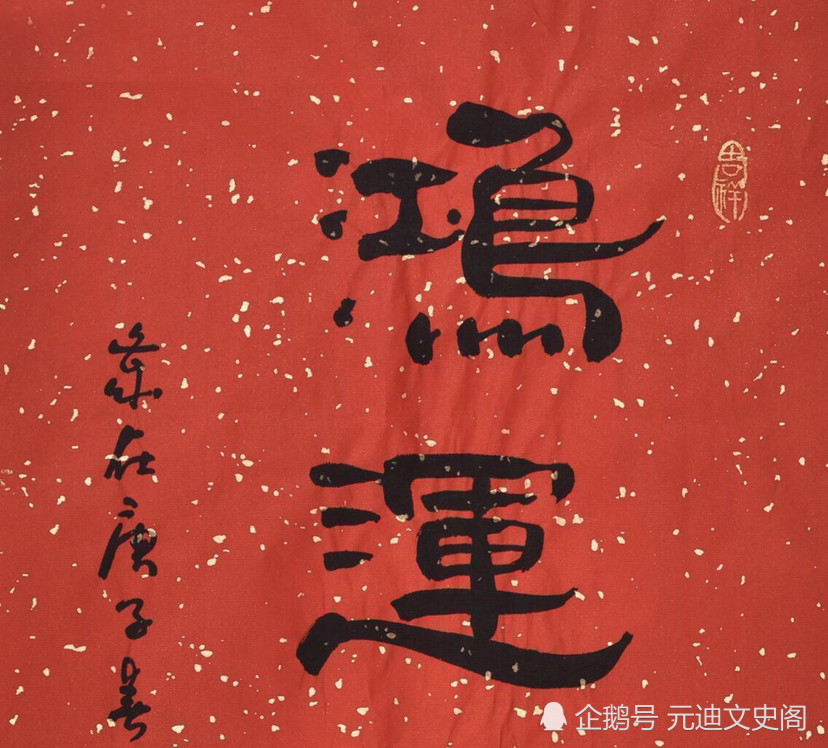 吉祥
鴻
運
歲在庚子春
企鹅号 元迪文史阁